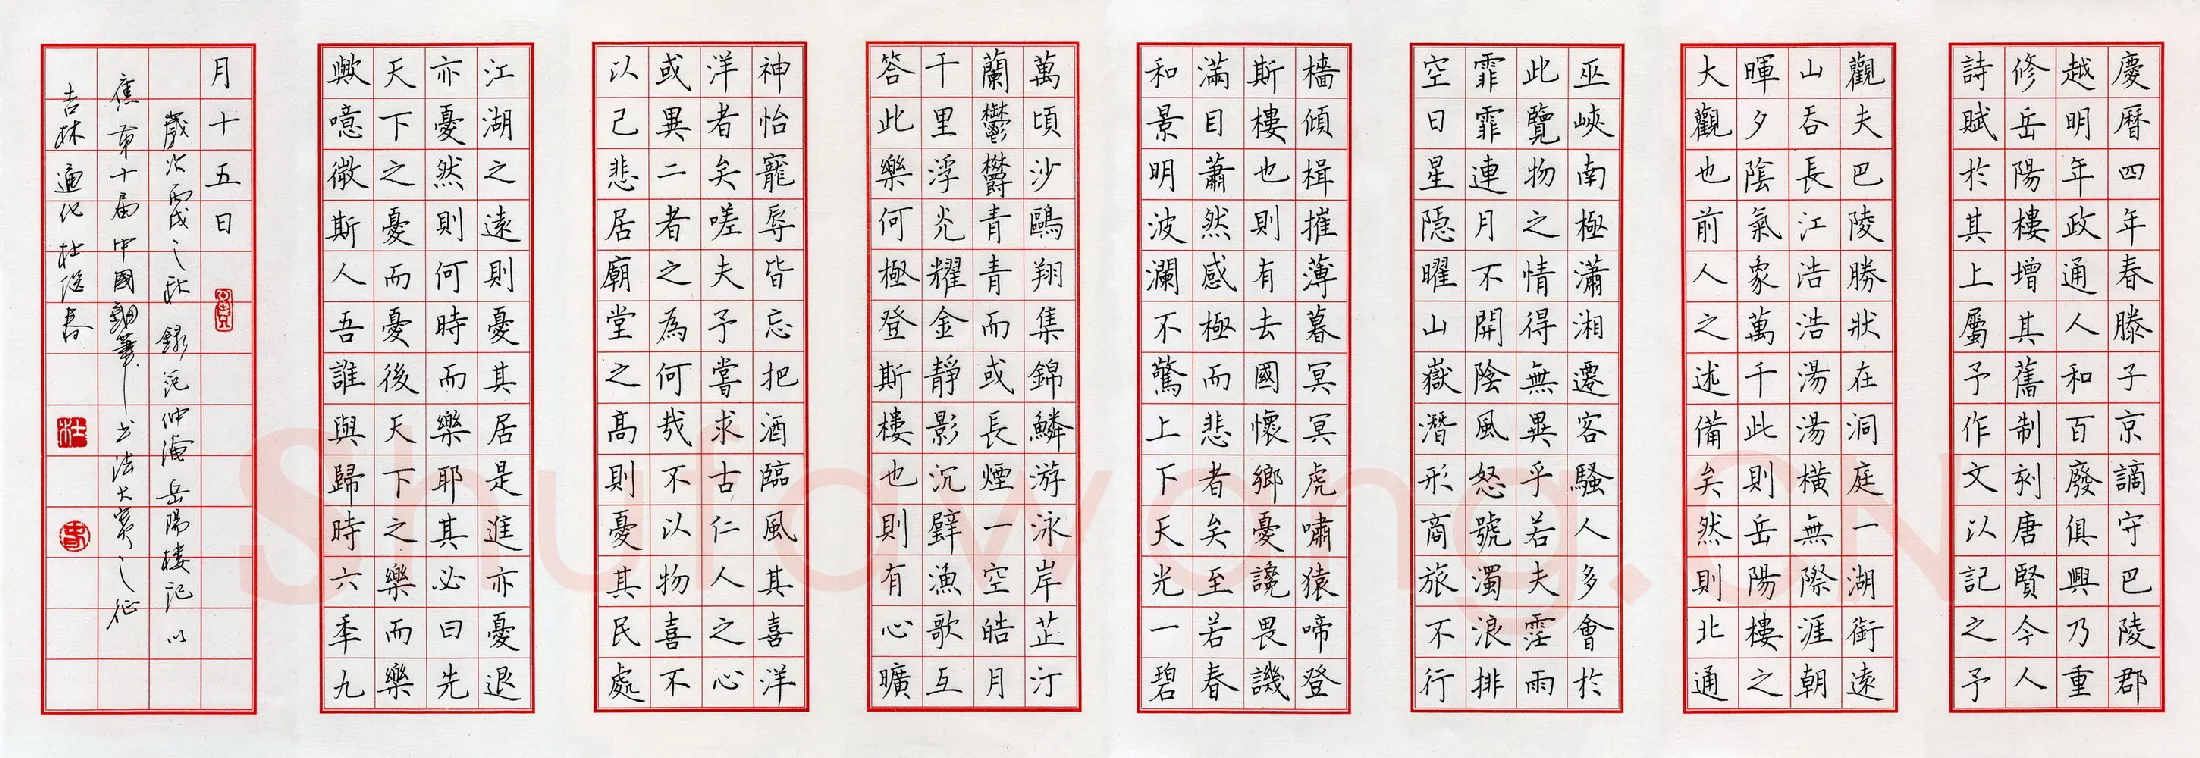 慶曆四年春滕子京謫守巴陵郡
越明年政通人和百廢俱興乃重
修岳陽樓增其舊制刻唐賢今人
詩賦於其上屬予作文以記之予
觀夫巴陵勝狀在洞庭一湖銜遠
山吞長江浩浩湯湯橫無際涯朝
暉夕陰氣象萬千此則岳陽樓之
大觀也前人之述備矣然則北通
巫峽南極瀟湘遷客騷人多會於
此覽物之情得無異乎若夫霪雨
霏霏連月不開陰風怒號濁浪排
空日星隱曜山嶽潛形商旅不行
檣傾楫摧薄暮冥冥虎嘯猿啼登
斯樓也則有去國懷鄉憂讒畏譏
滿目蕭然感極而悲者矣至若春
和景明波瀾不驚上下天光一碧
萬頃沙鷗翔集錦鱗游泳岸芷汀
蘭鬱鬱青青而或長煙一空皓月
千里浮光耀金靜影沉璧漁歌互
答此樂何極登斯樓也則有心曠
神怡寵辱皆忘把酒臨風其喜洋
洋者矣嗟夫予嘗求古仁人之心
或異二者之為何哉不以物喜不
以己悲居廟堂之高則憂其民處
江湖之遠則憂其居是進亦憂退
亦憂然則何時而樂耶其必曰先
天下之憂而憂後天下之樂而樂
歟噫微斯人吾誰與歸時六年九
月十五日
歲次丙戌之秋錄范仲淹岳陽樓記以
應第十屆中國鋼筆书法大賽之征
吉林通化杜春
杜
春
Shufawang.CN